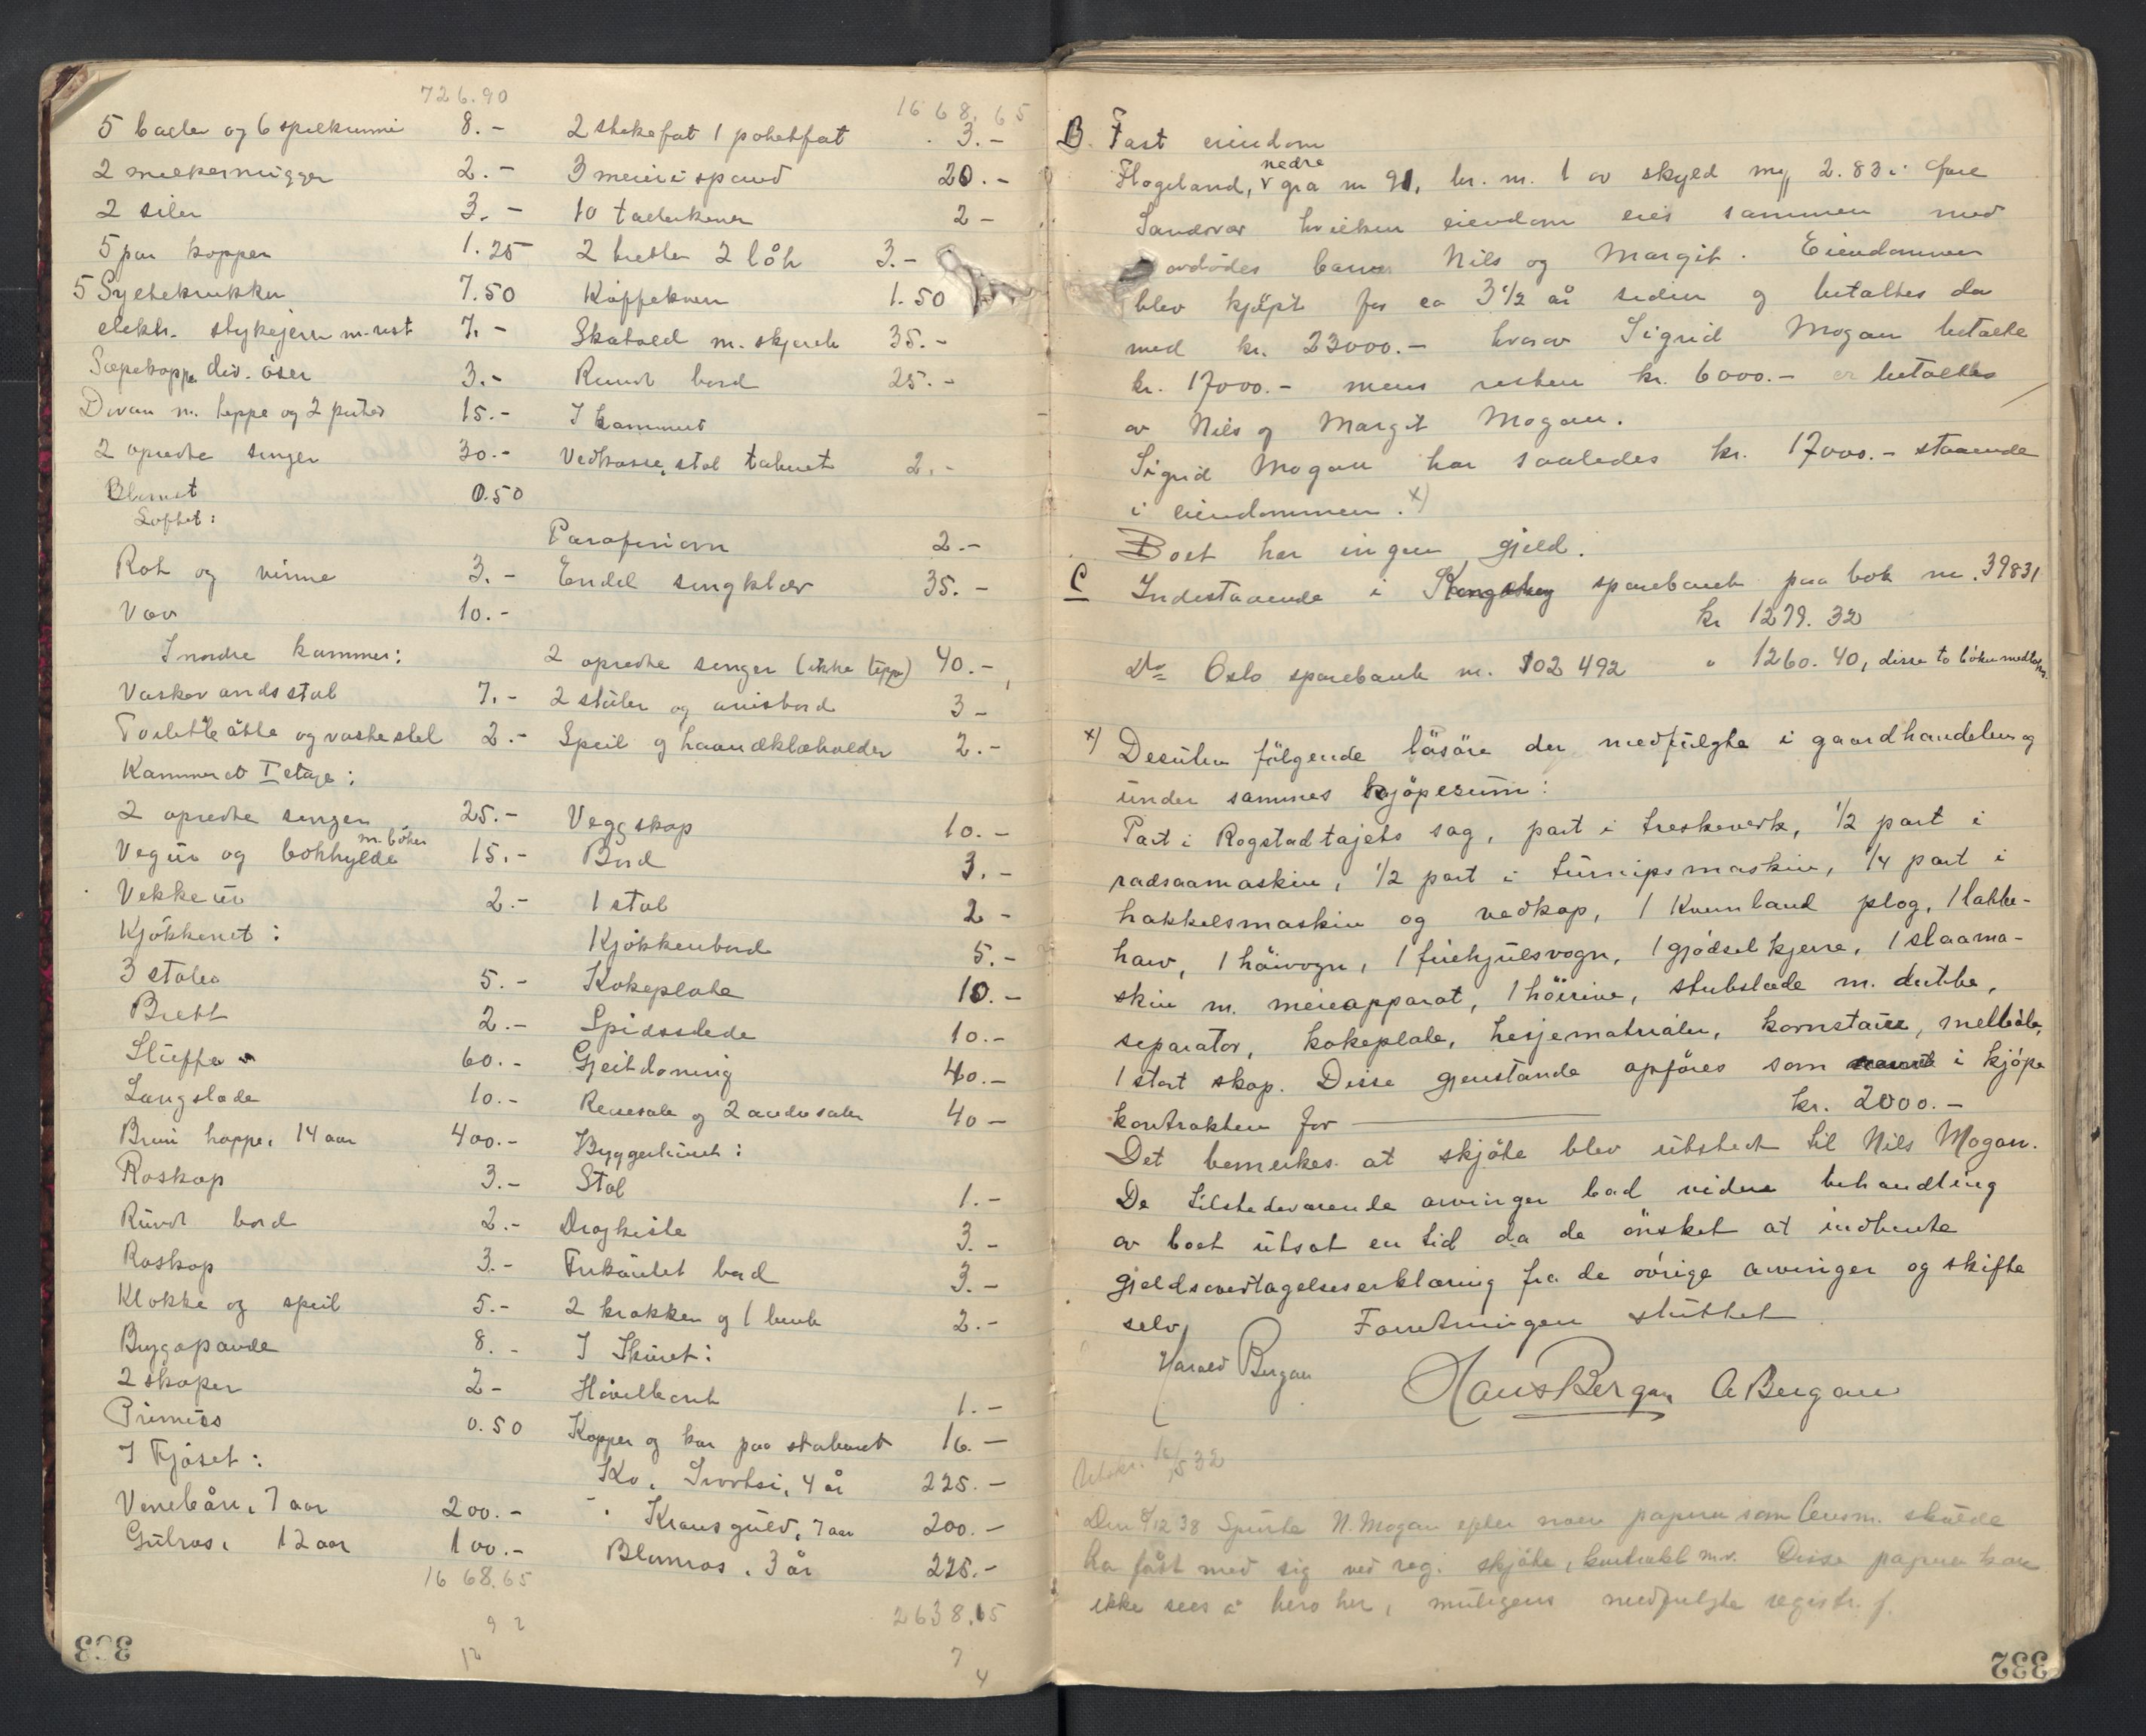 726.90
5 baller og 6 spilkummer 8.-
2 melkemugger 2.-
2 siler 3.-
5 par kopper 1.25
5 Syltekrukker 7.50
elektr. strykejern m. rist 7.-
Sæpekopper div. öser 3.-
Divan m. teppe og 2 puter 15.-
2 opredte senger 30.-
Blumet 0.50
Loftet:
Rok og vinne 3.-
Vev 10.-
I nordre kammer:
Vaskevandsstol 7.-
Toilette åtte og vaskestel 2.-
Kammeret I etage:
2 opredte senger 25.-
m. böker
Vegur og bokhylde 15.-
Vekkeur 2.-
Kjökkenet:
3 stoler 5.-
Brett 2.-
Sluffe 60.-
Langslæde 10.-
Brun hoppe, 14 aar 400.-
Roskap 3.-
Rundt bord 2.-
Roskap 3.-
Klokke og speil 5.-
Bryggepande 8.-
2 skaper 2-
Primus 0.50
I Fjöset:
Vinebån, 7 aar 200.-
Gulros, 12 aar 100.-
1668.65
9 2
12
303
1668.65
2 stekefat 1 potetfat 3.-
3 meierispand 20.-
10 tallerkener 2-
2 bretter 2 låk 3.-
Kaffekvern 1.50
Skatoll m. skjenk 35.-
Rundt bord 25.-
I kammeret
Vedkasse, stol taburet 2.-
Parafinovn 2.-
Endel sengklær 35.-
2 opredte senger (ikke tepp) 40.-
2 stoler og avisbord 3-
Speil og haandklæholder 2.-
Veggskap 10.-
Bord 3.-
1 stol 2-
Kjökkenbord 5.-
Kokeplate 10.-
Spidsslede 10.-
Gjeitdoning 40.-
Reisesale og 2 andre saler 40-
Byggerhuset:
Stol 1.-
Dragkiste 3.-
Firkantet bord 3.-
2 krakker og 1 benk 2.-
I Skuret:
Hövelbenk 1.-
Kopper og kar paa staburet 16.-
Ku, Svartsi, 4 år 225.-
" Kransguld, 7 aar 200.-
Blomros, 3 år 225.-
2638.15
7
4
B. Fast eiendom
nedre
Flogeland, v gra nr 91, br. nr. 1 av skyld mrk 2.83 i Øvre
Sandsvær hvilken eiendom eies sammen med
avdödes barn Nils og Margit. Eiendommen
blev kjöpt for ca 3 1/2 år siden og betaltes da
med kr. 23000.- hvorav Sigrid Mogan betalte
kr. 17000.- mens resten kr. 6000.- er betaltes
av Nils og Margit Mogan.
Sigrid Mogan har saaledes kr. 17000.- staaende
i eiendommen. x)
Boet har ingen gjeld.
C Indestaaende i Kongsberg sparebank paa bok nr. 39831
kr 1279.32
Do Oslo sparebank nr. 102492 " 1260.40, disse to böker medtas.
x) Desuten fölgende lösöre der medfulgte i gaardhandelen og
under sammes kjöpesum:
Part i Rogstadtajets sag, part i treskeverk, 1/2 part i
radsaamaskin, 1/2 part i turnipsmaskin, 1/4 part i
hakkelsmaskin og vedkap, 1 Kvernland plog, 1 labbe-
harv, 1 höivogn, 1 firehjulsvogn, 1 gjödselkjerre, 1 slaama-
skin m. meieapparat, 1 höirive, stubslæde m. dubbe,
separator, kokeplate, hesjematrialer, kornstaur, melbåler,
1 stort skap. Disse gjenstande opföres som i kjöpe
kontrakten for kr. 2000.-
Det bemerkes at skjöte blev utstedt til Nils Mogan.
De tilstedeværende arvinger bad videre behandling
av boet utsat en tid da de önsket at indhente
gjeldsovertagelseserklæring fra de övrige arvinger og skifte
selv. Forretningen sluttet
Harald Bergan Hans Bergan A Bergan
Utskr. 12/5 32
Den 5/12 38 Spurte N. Mogan efter noen papirer som lensm. skulde
ha fått med sig ved reg. skjöte, kontrakt m.v. Disse papirer kan
ikke sees å bero her, muligens medfulgte registr. f.
332